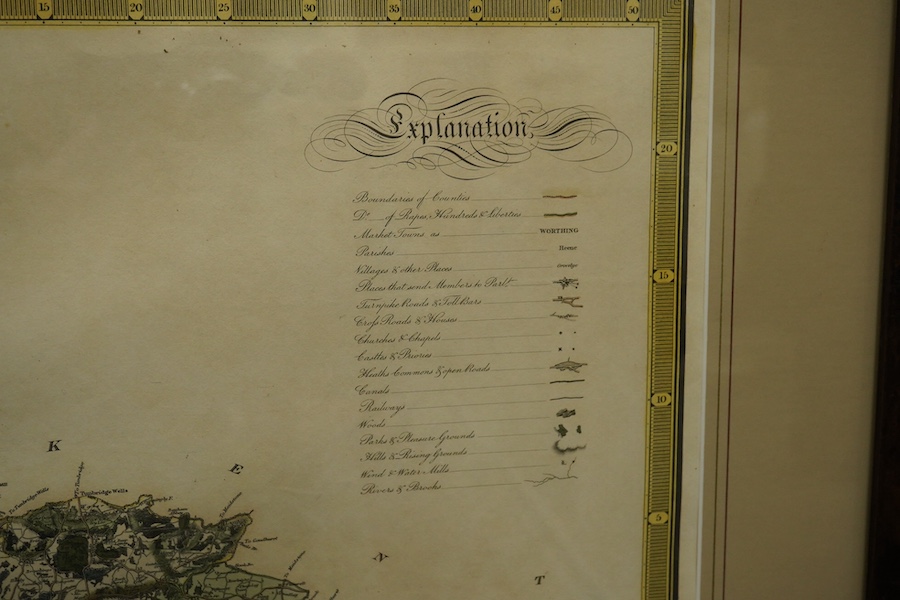 15 20 25 30 35 40 45 50
Explanation,
20
Boundaries of Counties
Do. of Rapes, Hundreds & Liberties
Market Towns as WORTHING
Parishes Heene
Villages & other Places
Places that send Members to Parlt.
Turnpike Roads & Toll Bars
15
Cross Roads & Houses
Churches & Chapels
Castles & Priories
Heaths Commons & open Roads
Canals
10
Railways
Woods
Parks & Pleasure Grounds
Hills & Rising Grounds
Wind & Water Mills
Rivers & Brooks
5
K
E
N
T
Tunbridge Wells